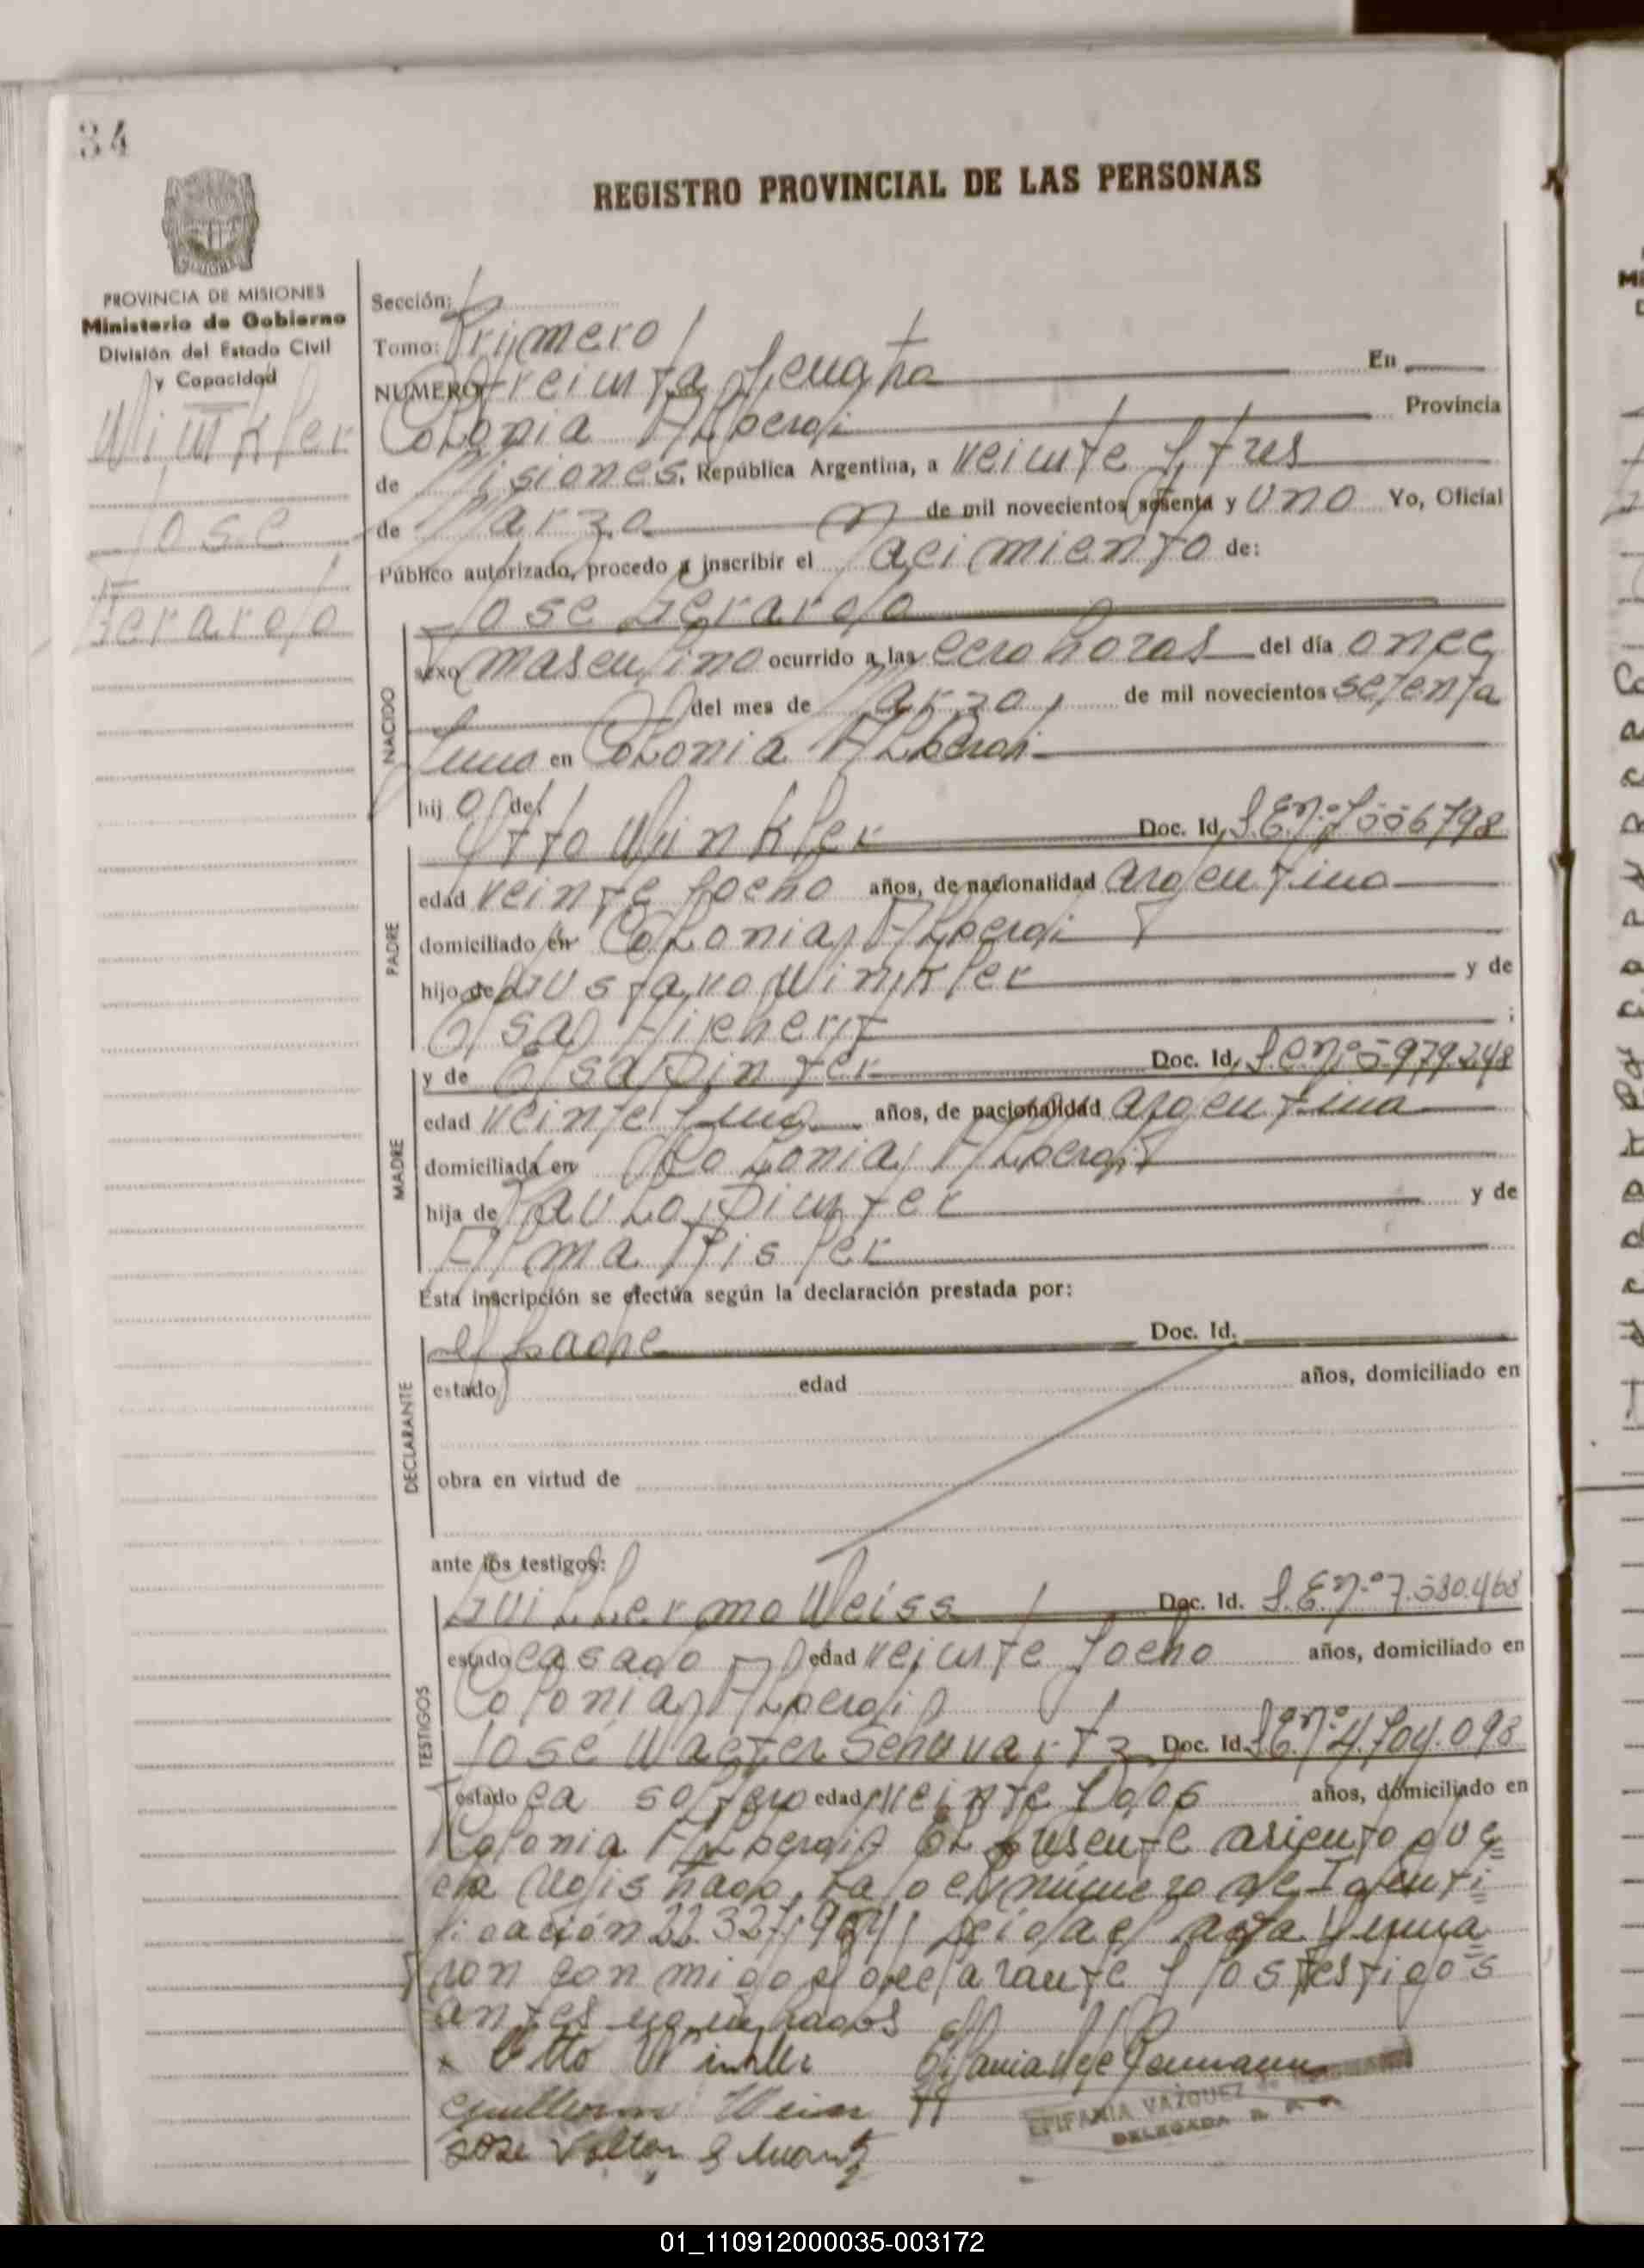 34
REGISTRO PROVINCIAL DE LAS PERSONAS
PROVINCIA DE MISIONES
Ministerio de Gobierno
División del Estado Civil
y Capacidad
Winkler
Jose
Gerardo
Sección:
Tomo: Primero
NUMERO treinta y cuatro En
Colonia Alberdi Provincia
de Misiones, República Argentina, a veinte y tres
de Marzo de mil novecientos setenta y uno Yo, Oficial
Público autorizado, procedo a inscribir el Nacimiento de:
Jose Gerardo
NACIDO
sexo masculino ocurrido a las cero horas del día once
del mes de Marzo, de mil novecientos setenta
y uno en Colonia Alberdi
hijo de:
Otto Winkler Doc. Id. L.E.Nº 7.556798
PADRE
edad veinte y ocho años, de nacionalidad argentino
domiciliado en Colonia Alberdi
hijo de Gustavo Winkler y de
Elsa
y de Elsa Pinter Doc. Id. L.C.Nº 5.979.248
MADRE
edad veinte y uno años, de nacionalidad argentina
domiciliada en Colonia Alberdi
hija de Paulo Pinter y de
Alma Risler
Esta inscripción se efectúa según la declaración prestada por:
DECLARANTE
el Padre Doc. Id.
estado edad años, domiciliado en
obra en virtud de
ante los testigos:
TESTIGOS
Guillermo Weiss Doc. Id. L.E.Nº 7.580.468
estado casado edad veinte y ocho años, domiciliado en
Colonia Alberdi
José Walter Schuvartz Doc. Id. L.E.Nº 4.704.098
estado ca soltero edad veinte y dos años, domiciliado en
Colonia Alberdi El presente asiento que
da registrado, bajo el número de Identi
ficación 22.327.964 leida el acta firma
ron conmigo el declarante y los testigos
antes
Otto Winkler
Guillermo Weiss
Jose Valter
EPIFANIA VAZQUEZ de
DELEGADA
01_110912000035-003172